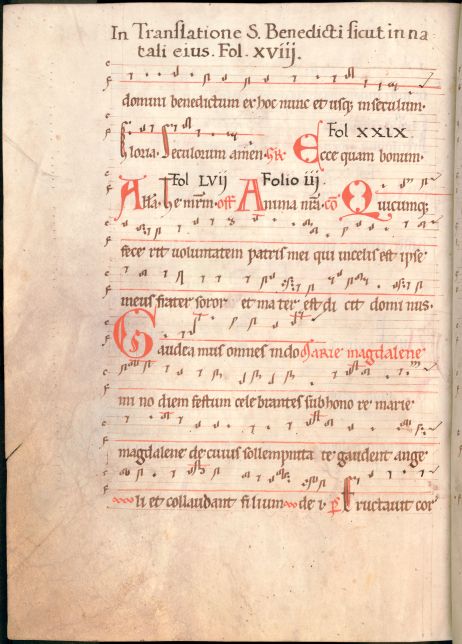 In Translatione S. Benedicti sicut in na
tali eius. Fol. xviij.
domini benedictum ex hoc nunc et usq; in seculum.
Fol XXIX.
Gloria. Seculorum amen. Ecce quam bonum.
Fol LVII Folio iij
Alla. Anima nr̄a. Quicumq;
fece rit voluntatem patris mei qui in celis est ipse
meus frater soror et ma ter est di cit domi nus.
Gaudea mus omnes in do Marie magdalene
mi no diem festum cele brantes sub hono re marie
magdalene de cuius sollempnita te gaudent ange
li et collaudant filium de i. Eructavit cor